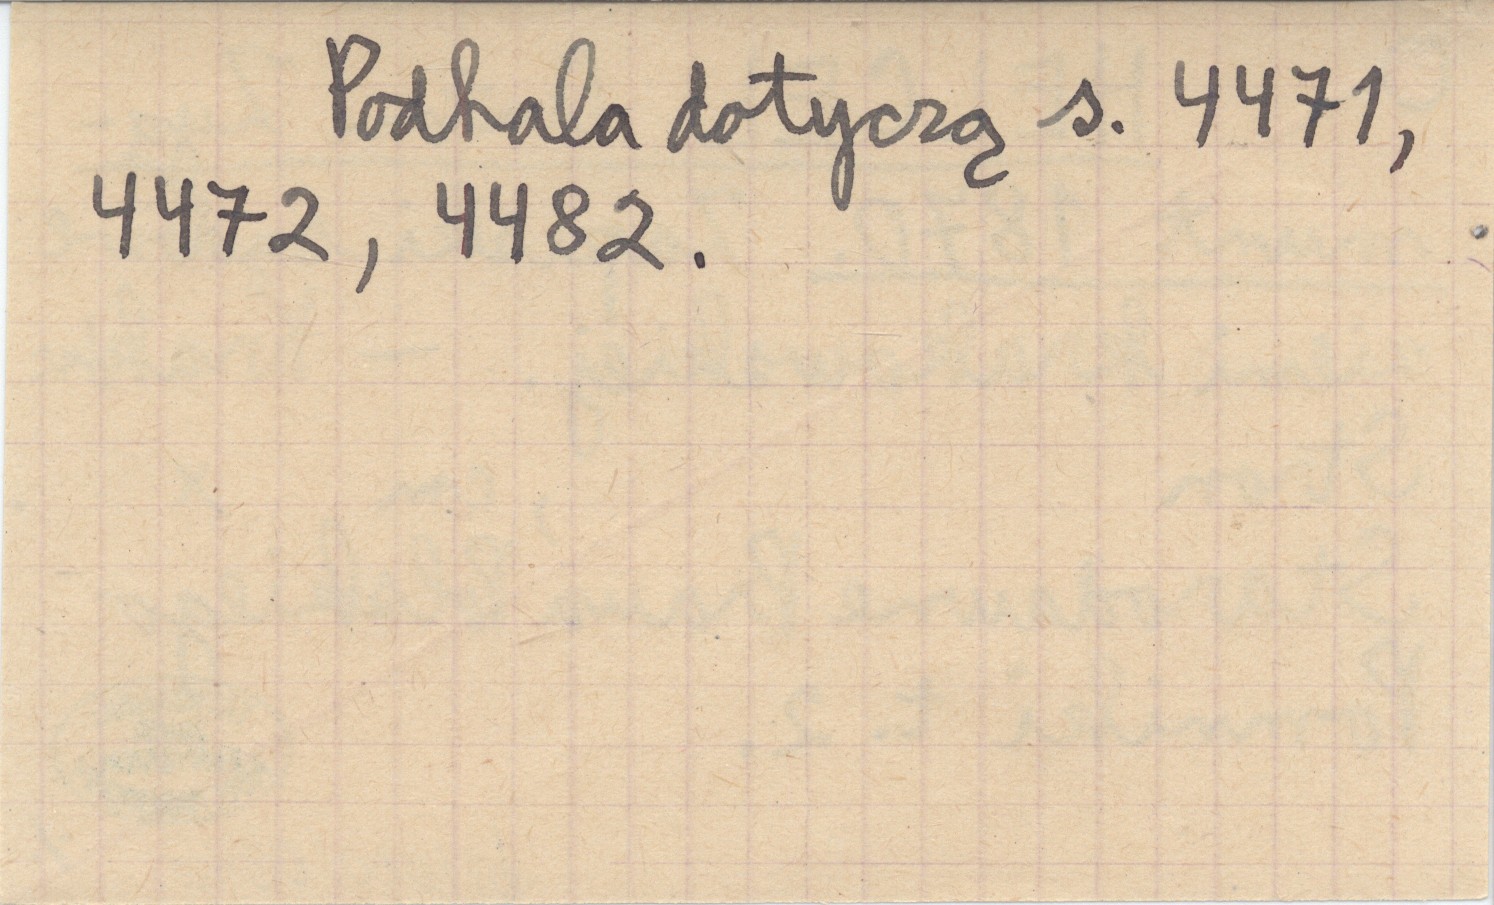 Podhala dotyczą s. 4471,
4472, 4482.